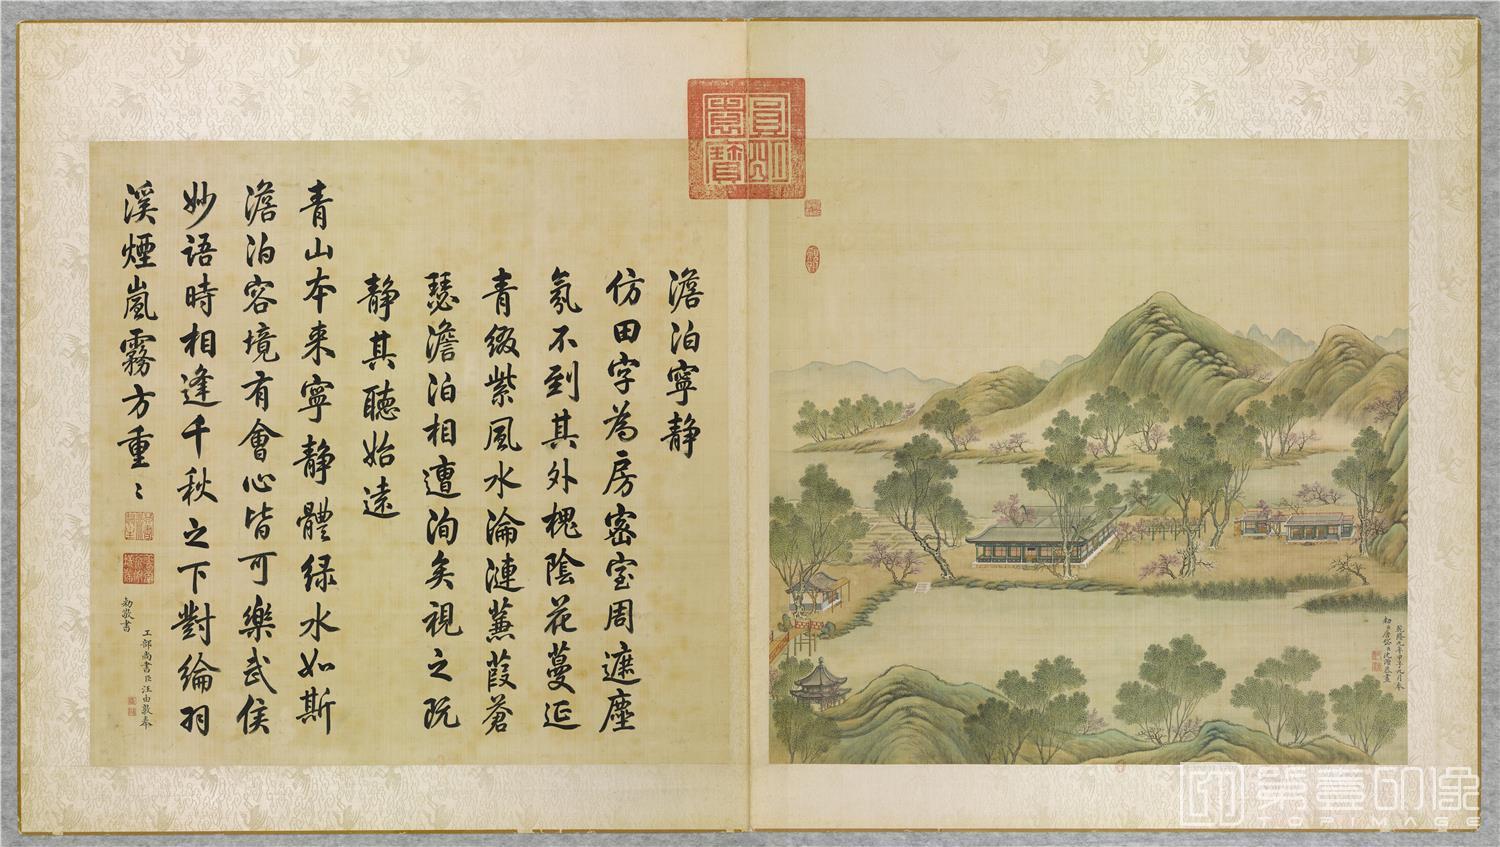 澹泊寧静
仿田字為房密室周遮塵
氛不到其外槐陰花蔓延
青綴紫風水淪漣蒹葭蒼
瑟澹泊相遭洵矣視之既
静其聽始遠
青山本来寧静體綠水如斯
澹泊容境有會心皆可樂武侯
妙語時相逢千秋之下對綸羽
溪煙嵐霧方重〻
工部尚書臣汪由敦奉
勅敬書
圓明園寶
乾隆九年甲子九月奉
勅臣唐岱沈源恭畫
第壹印像
TOPIMAGE